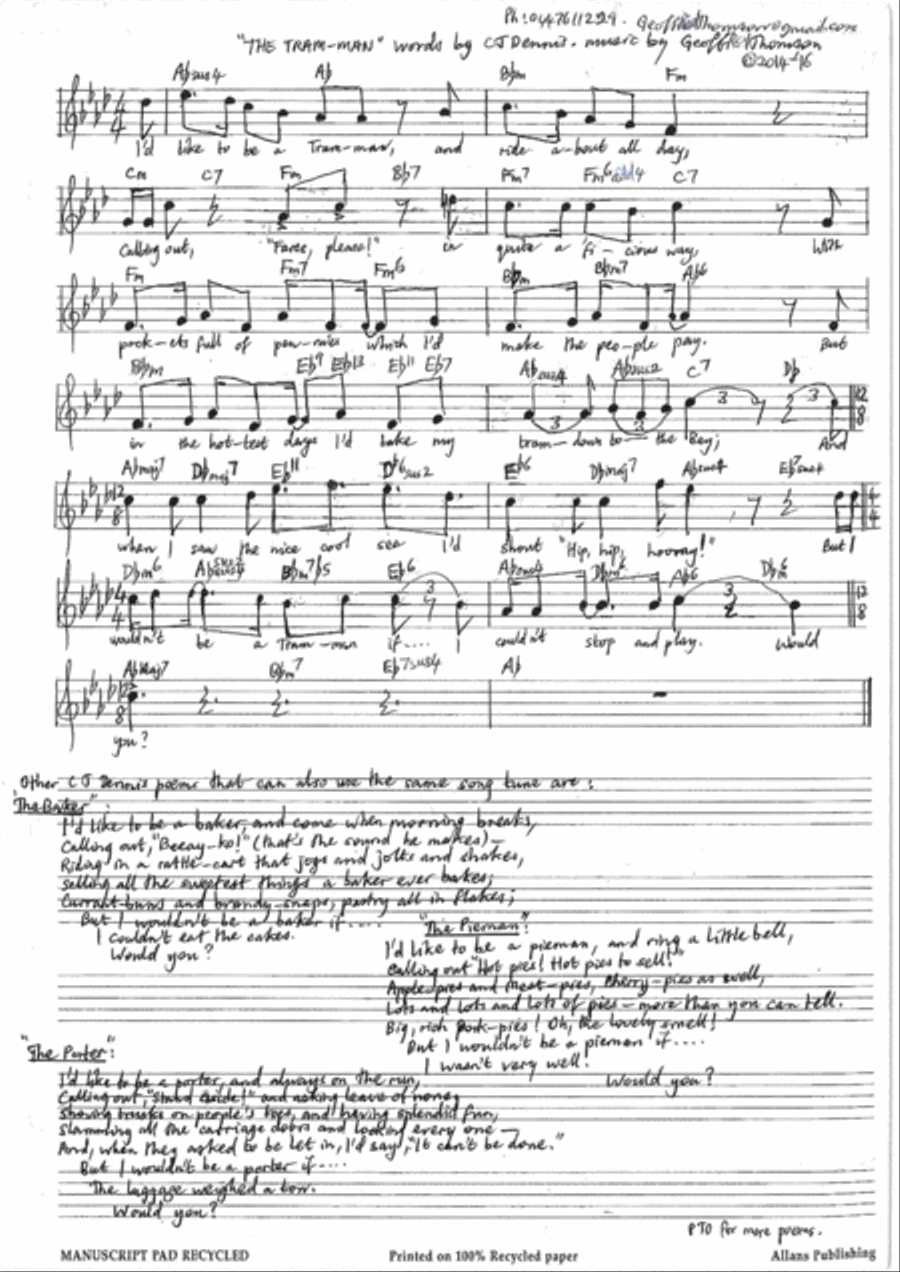 Ph: 0447611229. Geoffrethomson@gmail.com
"THE TRAM-MAN" words by CJ Dennis. music by Geoffrey Thomson
©2014-16
Absus4 Ab Bbm Fm
I'd like to be a Tram-man, and ride a-bout all day,
Cm C7 Fm Bb7 Fm7 Fm6 C7
Calling out, "Fares, please!" in quite a 'fi-cious way, With
Fm Fm7 Fm6 Bbm Bbm7 Ab6
pock-ets full of pen-nies which I'd make the peo-ple pay. But
Bbm Eb9 Eb13 Eb11 Eb7 Absus4 Absus2 C7 Db
in the hot-test days I'd take my tram-down to the Bay; And
Abmaj7 Dbmaj7 Eb11 Db6sus2 Eb6 Dbmaj7 Absus4 Eb7sus4
when I saw the nice cool sea I'd shout "Hip, hip, hooray!" But I
Dbm6 Bbm7b5 Eb6 Absus4 Dbm6 Ab6 Dbm6
wouldn't be a Tram-man if.... I couldn't stop and play. Would
Abmaj7 Dbm7 Eb7sus4 Ab
you?
Other CJ Dennis poems that can also use the same song tune are:
"The Baker":
I'd like to be a baker, and come when morning breaks,
Calling out, "Beeay-ko!" (that's the sound he makes) —
Riding in a rattle-cart that jogs and jolts and shakes,
Selling all the sweetest things a baker ever bakes;
Currant-buns and brandy-snaps, pastry all in flakes;
But I wouldn't be a baker if....
I couldn't eat the cakes.
Would you?
"The Pieman":
I'd like to be a pieman, and ring a little bell,
Calling out "Hot pies! Hot pies to sell!"
Apple-pies and Meat-pies, Cherry-pies as well,
Lots and lots and lots of pies – more than you can tell.
Big, rich Pork-pies! Oh, the lovely smell!
But I wouldn't be a pieman if....
I wasn't very well.
Would you?
"The Porter":
I'd like to be a porter, and always on the run,
Calling out, "Stand aside!" and asking leave of none;
Shoving trunks on people's toes, and having splendid fun,
Slamming all the carriage doors and locking every one —
And, when they asked to be let in, I'd say, "It can't be done."
But I wouldn't be a porter if....
The luggage weighed a ton.
Would you?
PTO for more poems.
MANUSCRIPT PAD RECYCLED Printed on 100% Recycled paper Allans Publishing